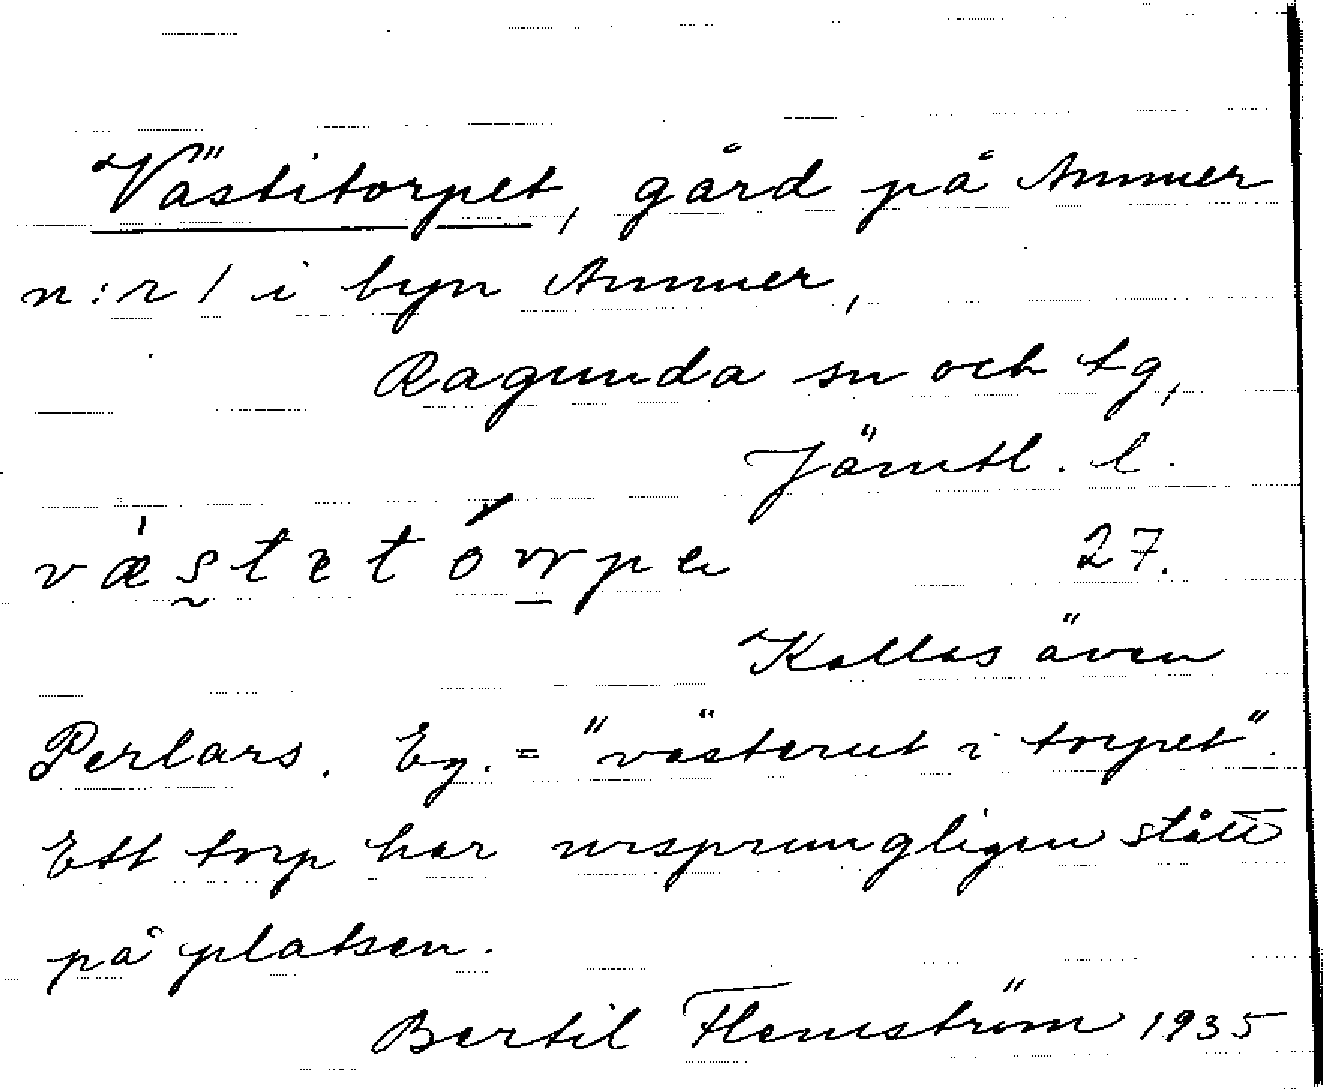 Västitorpet, gård på Ammer
n:r 1 i byn Ammer,
Ragunda sn och tg,
Jämtl. l.
27.
Kallas även
Perlars. Eg. = "västerut i torpet".
Ett torp har ursprungligen stått
på platsen.
Bertil Flemström 1935